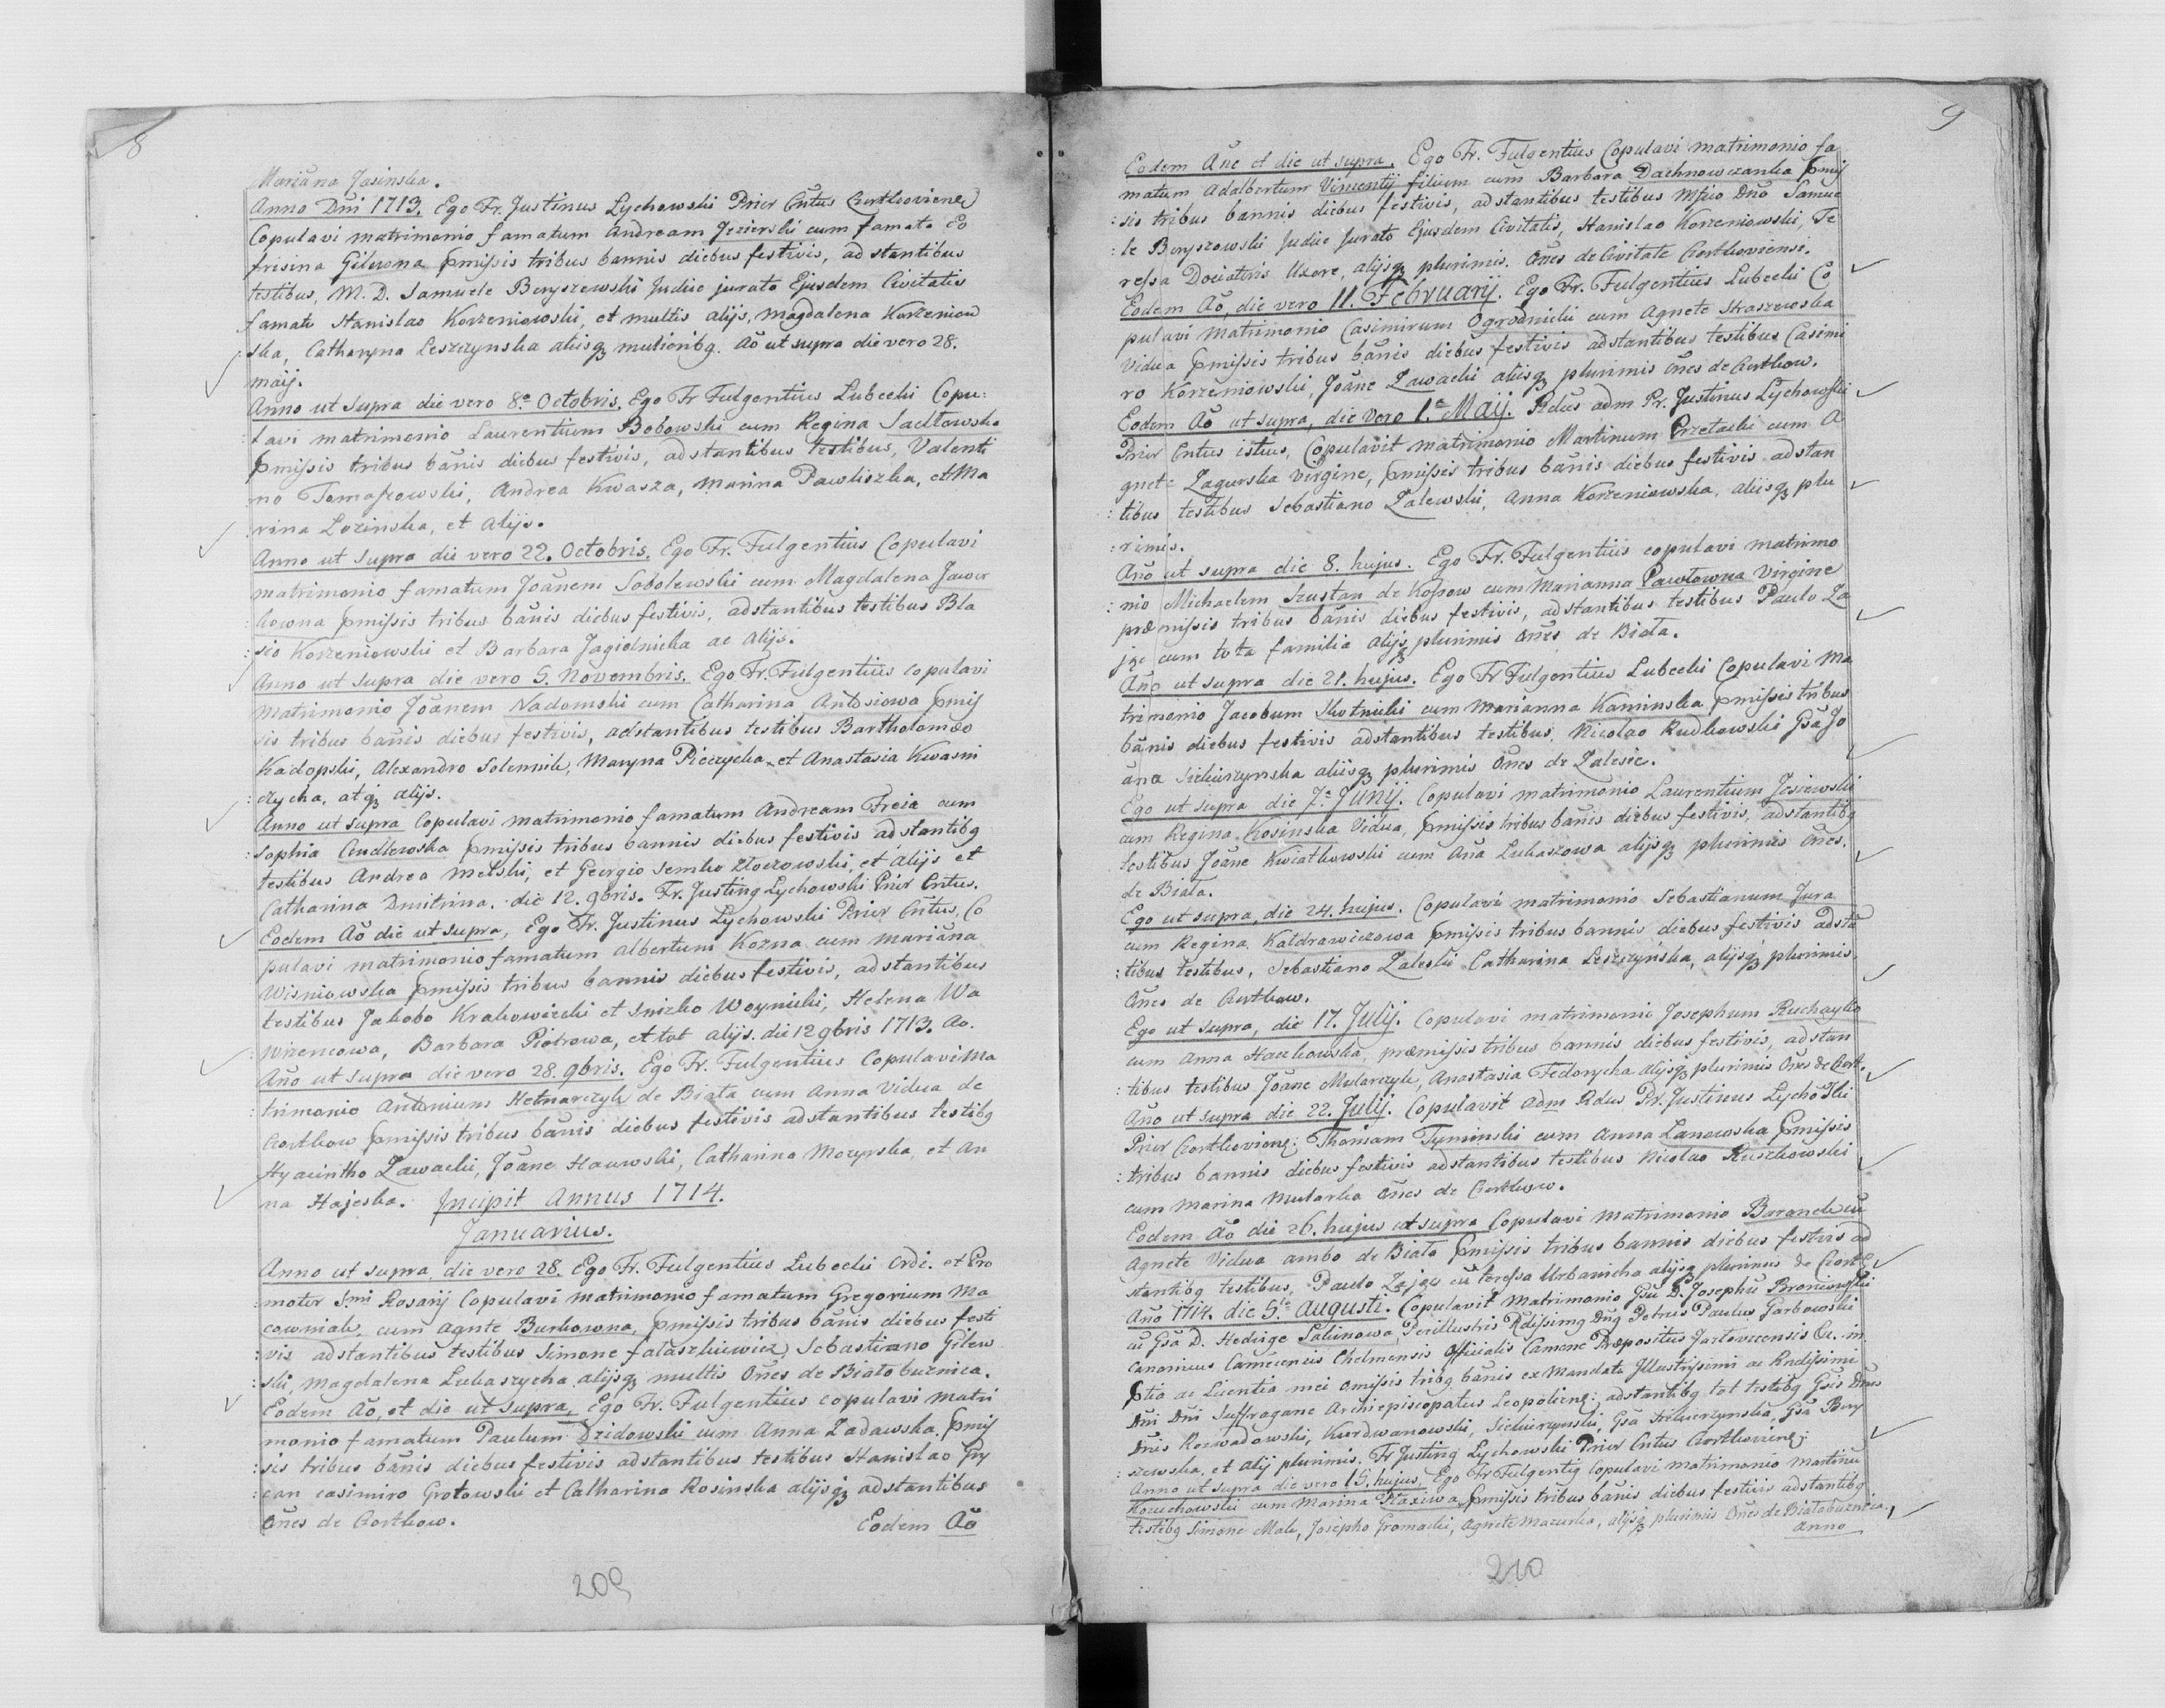 8
Mariãna Jasinska.
Anno Dni 1713. Ego Fr. Justinus Lychowski Prior Cntus Czortkoviene
Copulavi matrimonio famatum Andream Jezierski cum famata Eo
frisina Gilewna pmissis tribus bannis diebus festivis, adstantibus
testibus, M. D. Samuele Beryszewski Judice jurato Ejusdem Civitatis
famato Stanislao Korzeniowski, et multis alijs, Magdalena Korzeniow
ska, Catharyna Leszczynska aliisq mulieribq. Ao ut supra die vero 28.
maij.
Anno ut supra die vero 8a Octobris. Ego Fr Fulgentius Lubecki Copu:
lavi matrimonio Laurentium Bobowski cum Regina Sadlowska
pmissis tribus bãnis diebus festivis, adstantibus testibus, Valenti
no Tomaszowski, Andrea Kwasza, Marina Pawliszka, et Ma
rina Lozinska, et alijs.
Anno ut supra die vero 22. Octobris. Ego Fr. Fulgentius Copulavi
matrimonio famatum Joãnem Sobolewski cum Magdalena Jawor
:kowna pmissis tribus bãnis diebus festivis, adstantibus testibus Bla
:sio Korzeniowski et Barbara Jagielnicka ac alijs.
Anno ut supra die vero 5. Novembris. Ego Fr. Fulgentius copulavi
matrimonio Joãnem Nadomski cum Catharina Antosiowa pmis
sis tribus bãnis diebus festivis, adstantibus testibus Bartholomæo
Kadopski, Alexandro Solennik, Maryna Pieczycka et Anastasia Kwasni
:czycha, atq alijs.
Anno ut supra Copulavi matrimonio famatum Andream Freia cum
Sophia Cudlowska pmissis tribus bannis diebus festivis adstantibq
testibus Andrea Melski, et Georgio Semko Zloczowski, et alijs et
Catharina Dmitrina. die 12. 9bris. Fr. Justinq Lychowski Prior Cntus.
Eodem Ao die ut supra, Ego Fr. Justinus Lychowski Prior Cntus, Co
pulavi matrimonio famatum Albertum Kozna cum Mariãna
Wisniowska pmissis tribus bannis diebus festivis, adstantibus
testibus Jakobo Krakowiecki et Inizko Woynicki, Helena Wa
wrzencowa, Barbara Piotrowa, et tot alijs. die 12 9bris 1713. Ao.
Año ut supra die vero 28. 9bris. Ego Fr. Fulgentius Copulavi Ma
:trimonio Antonium Hetnarczyk de Biala cum Anna Vidua de
Czortkow pmissis tribus bãnis diebus festivis adstantibus testibq
Hyacintho Zawacki, Joãne Hauwski, Catharina Mozyrska, et An
na Hajeska. Incipit Annus 1714.
Januarius.
Anno ut supra, die vero 28. Ego Fr. Fulgentius Lubecki Ordi. et Pro
:motor Smi Rosarij Copulavi matrimonio famatum Gregorium Ma
cowniak, cum Agnte Burkowna, pmissis tribus bãnis diebus festi
:vis adstantibus testibus Simone fataszkiewicz, Sebastiano Gilew
:ski, Magdalena Lukaszycha alijsq multis Ones de Bialobuznica.
Eodem Ao, et die ut supra, Ego Fr. Fulgentius copulavi matri
monio famatum Paulum Dzidowski cum Anna Zadawska, pmis
:sis tribus bãnis diebus festivis adstantibus testibus Stanislao Gry
:can casimiro Grotowski et Catharina Rosinska alijsq adstantibus
Ones de Czortkow.
Eodem Ao
209
9
Eodem Ane et die ut supra. Ego Fr. Fulgentius Copulavi matrimonio fa
matum Adalbertum Vincentij filium cum Barbara Dachnowczanka pmis
:sis tribus bannis diebus festivis, adstantibus testibus Mfico Dno Samue
:le Beryszowski Judice Jurato Ejusdem Civitatis, Stanislao Korzeniowski, Te
ressa Dociatris Uxore, alijsq plurimis. Ones de Civitate Czortkoviensi.
Eodem Ao, die vero 11. Februarij. Ego Fr. Fulgentius Lubecki Co
pulavi matrimonio Casimirum Ogrodnicki cum Agnete Straszewska
Vidua pmissis tribus bãnis diebus festivis adstantibus testibus Casimi
ro Korzeniowski, Joãne Zawacki aliisq plurimis Ones de Czortkow.
Eodem Ao ut supra, die vero 1a Maij. Rdus adm Pr. Justinus Lychowski
Prior Cntus istius, Copulavit matrimonio Martinum Przetacki cum A
gnete Zagurska Virgine, pmissis tribus bãnis diebus festivis adstan
:tibus testibus Sebastiano Zalewski, Anna Korzeniowska, aliisq plu
:rimis.
Año ut supra die 8. hujus. Ego Fr. Fulgentius copulavi matrimo
:nio Michaelem Szustan de Kossow cum Marianna Pawlowna Virgine
præmissis tribus bãnis diebus festivis, adstantibus testibus Paulo Za
jąc cum tota familia alijsq plurimis Ones de Biala.
Año ut supra die 21. hujus. Ego Fr Fulgentius Lubecki Copulavi Ma
trimonio Jacobum Skotnicki cum Marianna Kaminska pmissis tribus
bãnis diebus festivis adstantibus testibus, Nicolao Rudkowski Gsa Jo
ãna Siekierzynska aliisq plurimis Ones de Zalesie.
Ego ut supra die 7a Junij. Copulavi matrimonio Laurentium Jesiewski
cum Regina Kosinska Vidua, pmissis tribus bãnis diebus festivis, adstantibq
testibus Joãne Kwiatkowski cum Ana Lukaszowa alijsq plurimis Ones.
de Biala.
Ego ut supra, die 24. hujus. Copulavi matrimonio Sebastianum Jura
cum Regina Kaldrawiczowa pmissis tribus bannis diebus festivis adstã
:tibus testibus, Sebastiano Zaleski Catharina Leszczynska, alijsq plurimis.
Ones de Czortkow.
Ego ut supra, die 17. Julij. Copulavi matrimonio Josephum Ruchaylo
cum Anna Haczkowska, præmissis tribus bannis diebus festivis, adstan
:tibus testibus Joãne Mularczyk, Anastasia Fedorycha alijsq plurimis Ones de Czort.
Año ut supra die 22. Julij. Copulavit Adm Rdus Pr. Justinus Lychoski
Prior Czortkovienq: Thomam Tyminski cum Anna Lanowska pmissis
:tribus bannis diebus festivis adstantibus testibus Nicolao Ruszkowski
cum Marina Mularka Ones de Czortkow.
Eodem Ao die 26. hujus ut supra Copulavi matrimonio Baranek cũ
Agnete Vidua ambo de Biala pmissis tribus bannis diebus festivis ad
stantibq testibus, Paulo Zając cũ teressa Urbanicha alijsq plurimis de Czort
Año 1714. die 5ta Augusti. Copulavit Matrimonio Gsũ D. Josephũ Broniewski
cũ Gsa D. Hedvige Sabinowa, Perillustris Rdissimq Dnq Petrus Paulus Garbowski
Canonicus Camecensis Chelmensis Officialis Camene Præpositus Jazlovecensis Cu. in
ptio ac Licentia mei omissis tribq bãnis ex Mandato Illustrissimi ac Rndissimi
Dni Dni Suffragane Archiepiscopatus Leopolienq: adstantibq tot testibq Gsis Dnis
Dnis Rozwadowski, Kurdwanowski, Siekierzynski, Gsa Siekierzynska, Gsa Bery
:szewska, et alij plurimis. Fr Justinq Lychowski Prior Cntus Czortkovienq:
Anno ut supra die vero 15. hujus, Ego Fr Fulgentiq Copulavi matrimonio Martinũ
Kouchowski cum Marina Hazzwa pmissis tribus bãnis diebus festivis adstantibq
testibq Simone Mak, Josepho Gromacki, Agnete Mazurka, alijsq plurimis Ones de Bialobuznica.
Anno
210